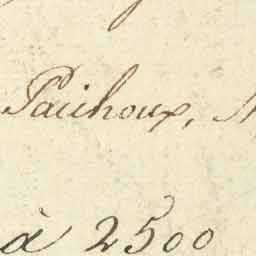 Paichoux,
à 2500